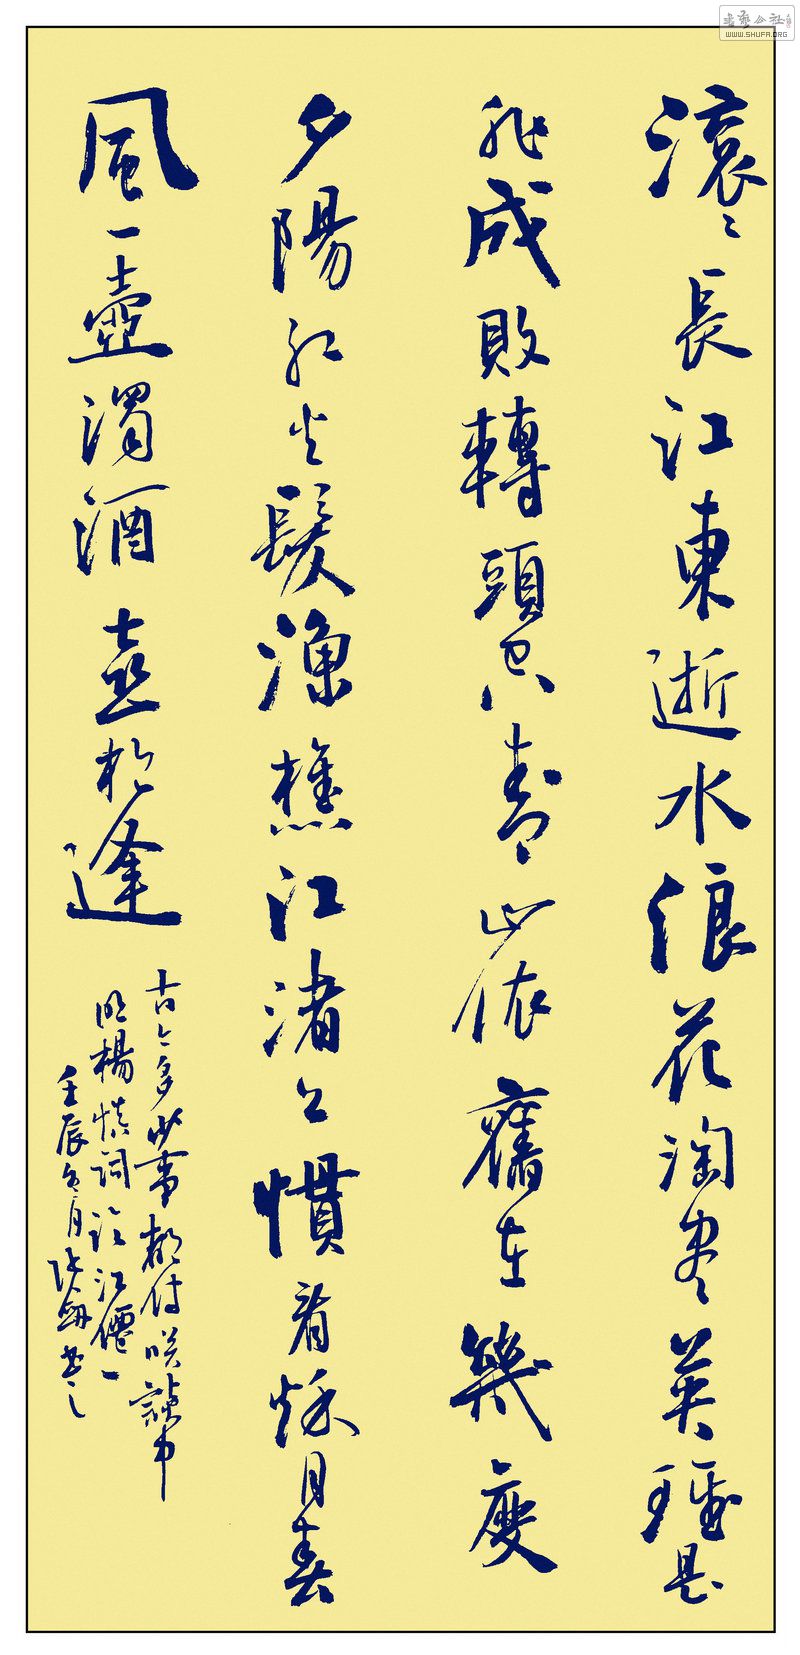 書藝公社
WWW.SHUFA.ORG
滾〻長江東逝水浪花淘盡英雄是
非成敗轉頭空青山依舊在幾度
夕陽紅白髮漁樵江渚上慣看秋月春
風一壺濁酒喜相逢
古今多少事都付咲談中
明楊慎詞臨江僊一
壬辰冬月張書之